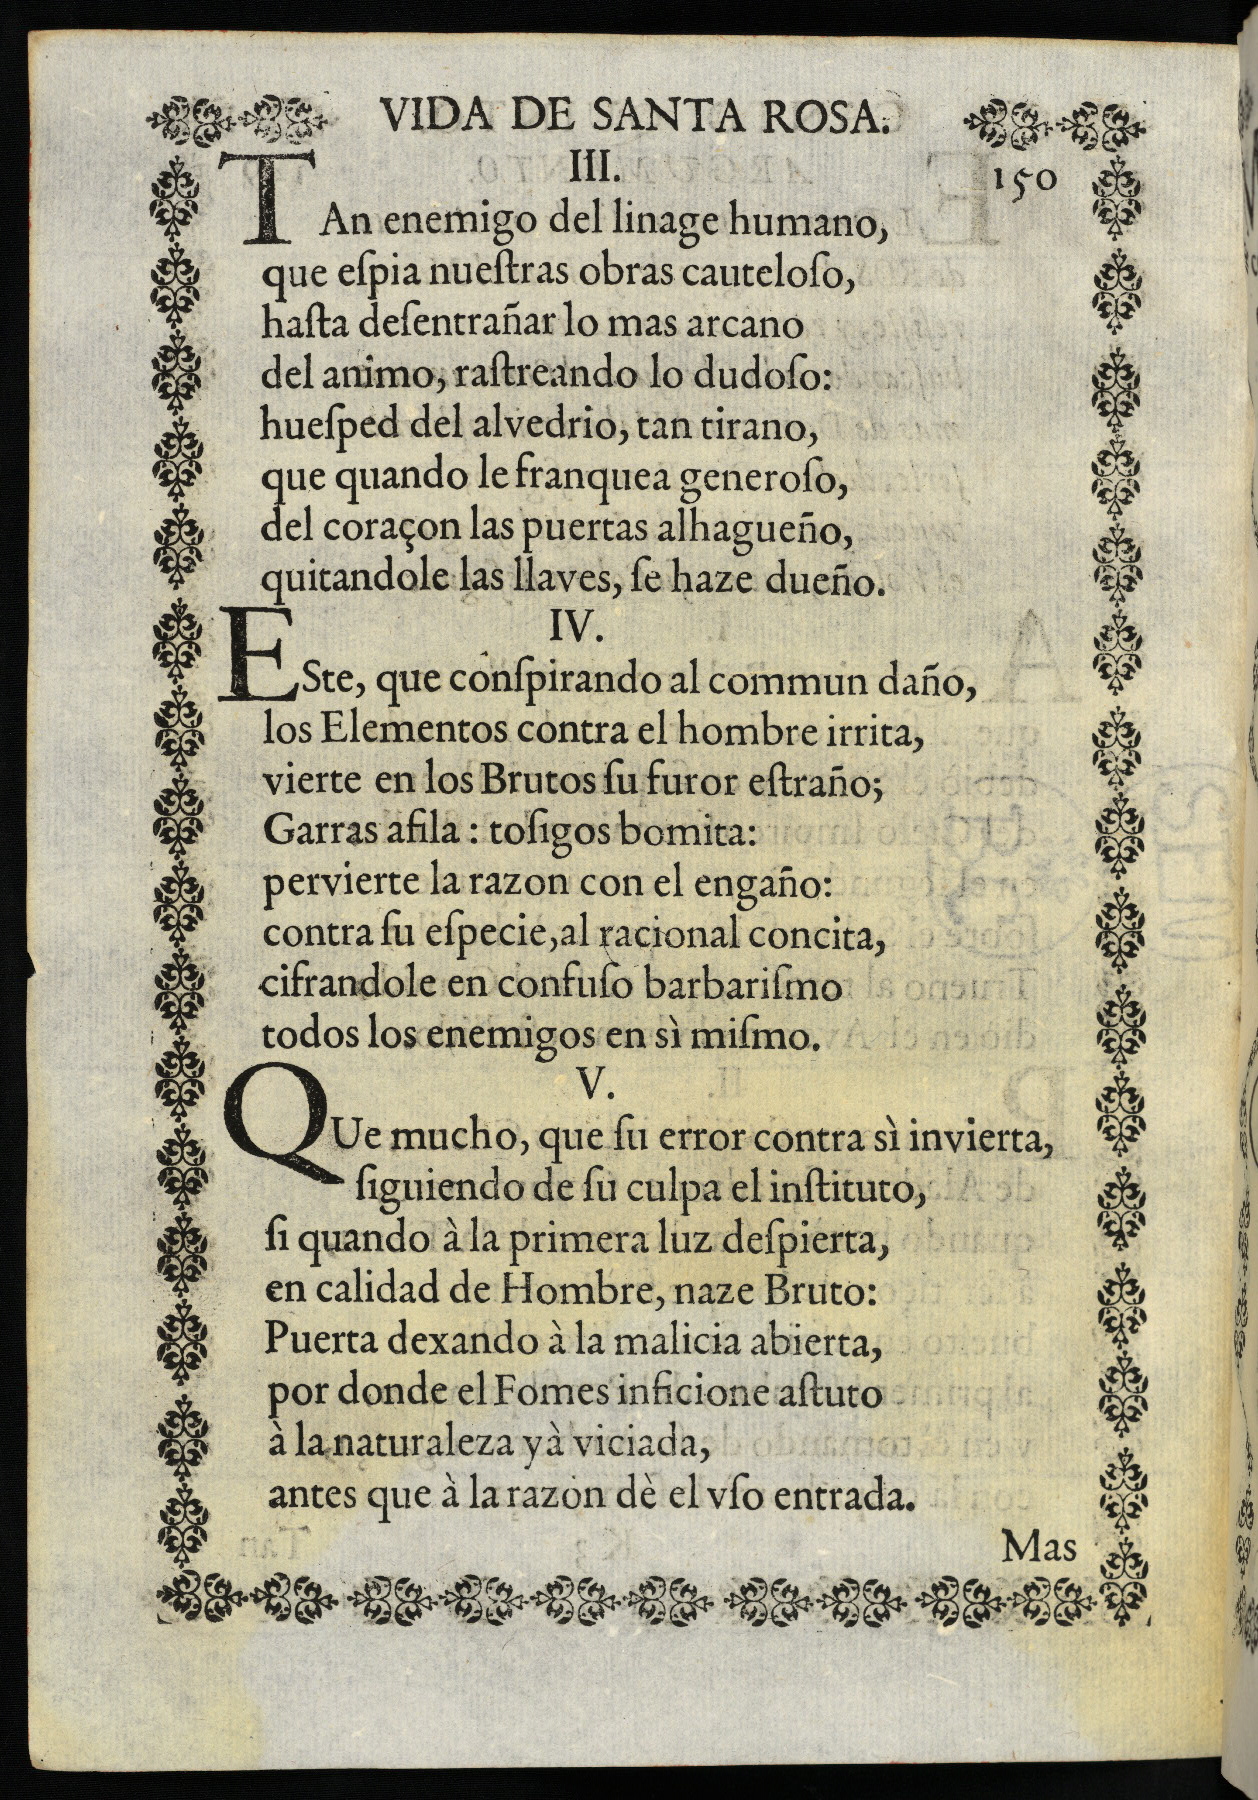 VIDA DE SANTA ROSA.
III.
150
TAn enemigo del linage humano,
que eſpia nueſtras obras cauteloſo,
haſta deſentrañar lo mas arcano
del animo, raſtreando lo dudoſo:
hueſped del alvedrio, tan tirano,
que quando le franquea generoſo,
del coraçon las puertas alhagueño,
quitandole las llaves, ſe haze dueño.
IV.
ESte, que conſpirando al commun daño,
los Elementos contra el hombre irrita,
vierte en los Brutos ſu furor eſtraño;
Garras afila : toſigos bomita:
pervierte la razon con el engaño:
contra ſu eſpecie, al racional concita,
cifrandole en confuſo barbariſmo
todos los enemigos en sì miſmo.
V.
QUe mucho, que ſu error contra sì invierta,
ſiguiendo de ſu culpa el inſtituto,
ſi quando à la primera luz deſpierta,
en calidad de Hombre, naze Bruto:
Puerta dexando à la malicia abierta,
por donde el Fomes inficione aſtuto
à la naturaleza yà viciada,
antes que à la razon dè el vſo entrada.
Mas